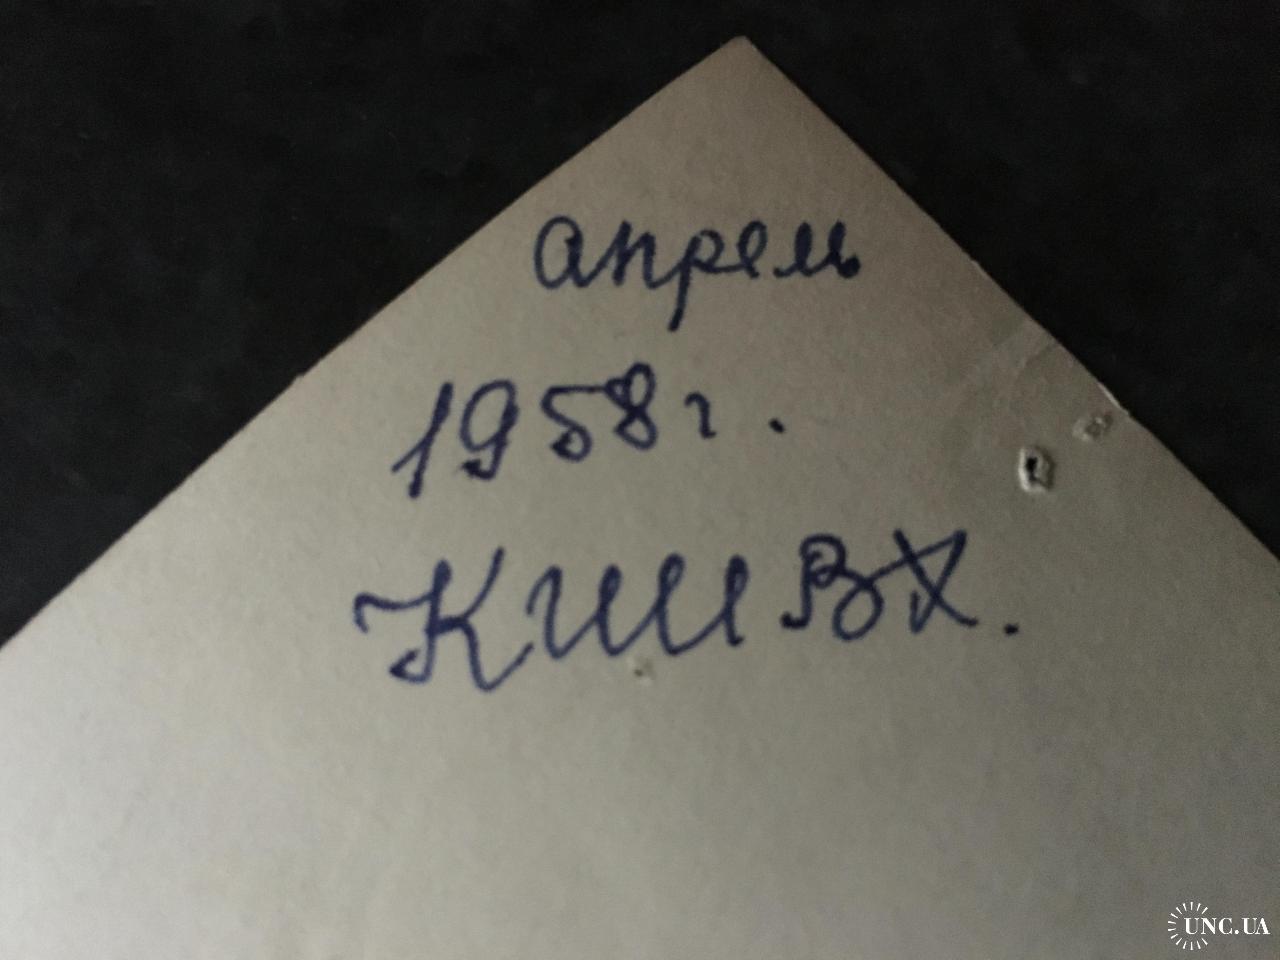 апрель
1958 г.
КШВХ.
UNC.UA